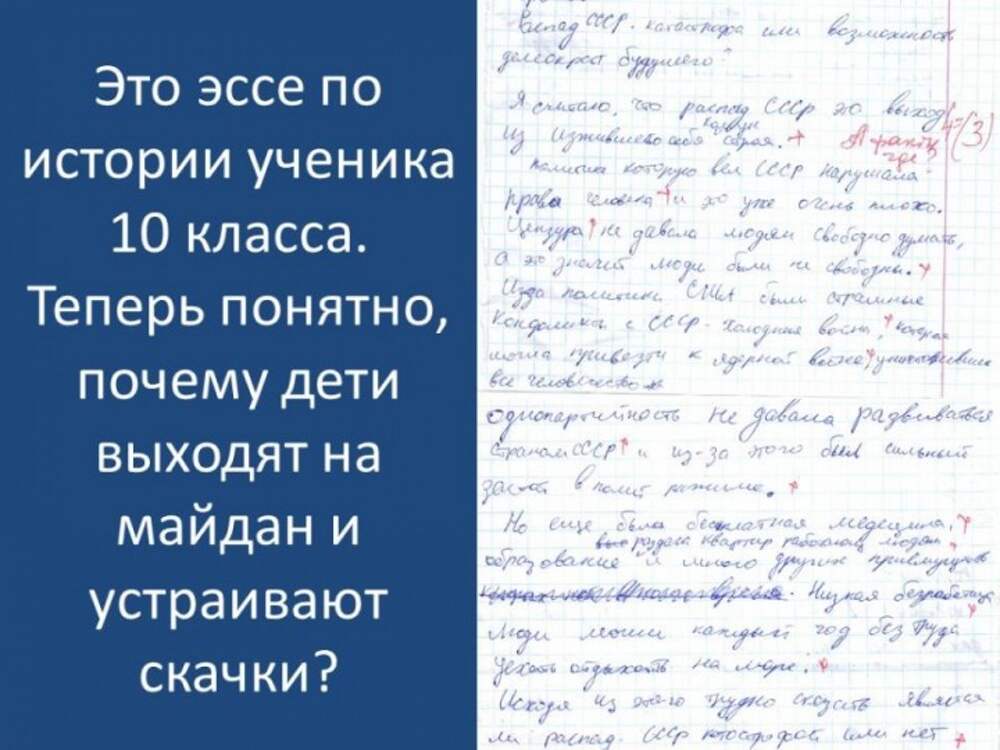 Это эссе по
истории ученика
10 класса.
Теперь понятно,
почему дети
выходят на
майдан и
устраивают
скачки?
распад СССР - катастрофа или возможность
будущего?
Я считаю, что распад СССР это выход
из изжившего себя строя.
А факты
где
4=(3)
политика которую вёл СССР нарушала
права человека и это уже очень плохо.
Цензура не давала людям свободно думать,
а это значит люди были не свободны.
политики США были
с СССР - холодная война, которая
могла привезти к ядерной войне,
все человечество
однопартийность не давала развиваться
странам СССР и из-за этого был сильный
застой в полит режиме.
Но еще была бесплатная медецина,
раздача квартир работающ людям
образование и много других
Низкая безработица
люди могли каждый год без труда
уехать отдыхать на море.
Исходя из этого трудно сказать является
ли распад СССР или нет